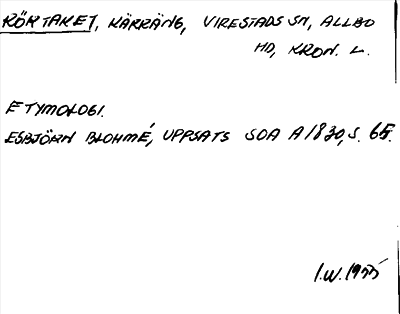 RÖRTAKET, KÄRRÄNG, VIRESTADS SN, ALLBO
HD, KRON. L.
ETYMOLOGI.
ESBJÖRN BLOHMÉ, UPPSATS SOA A 1830, S. 65.
I.W. 1955